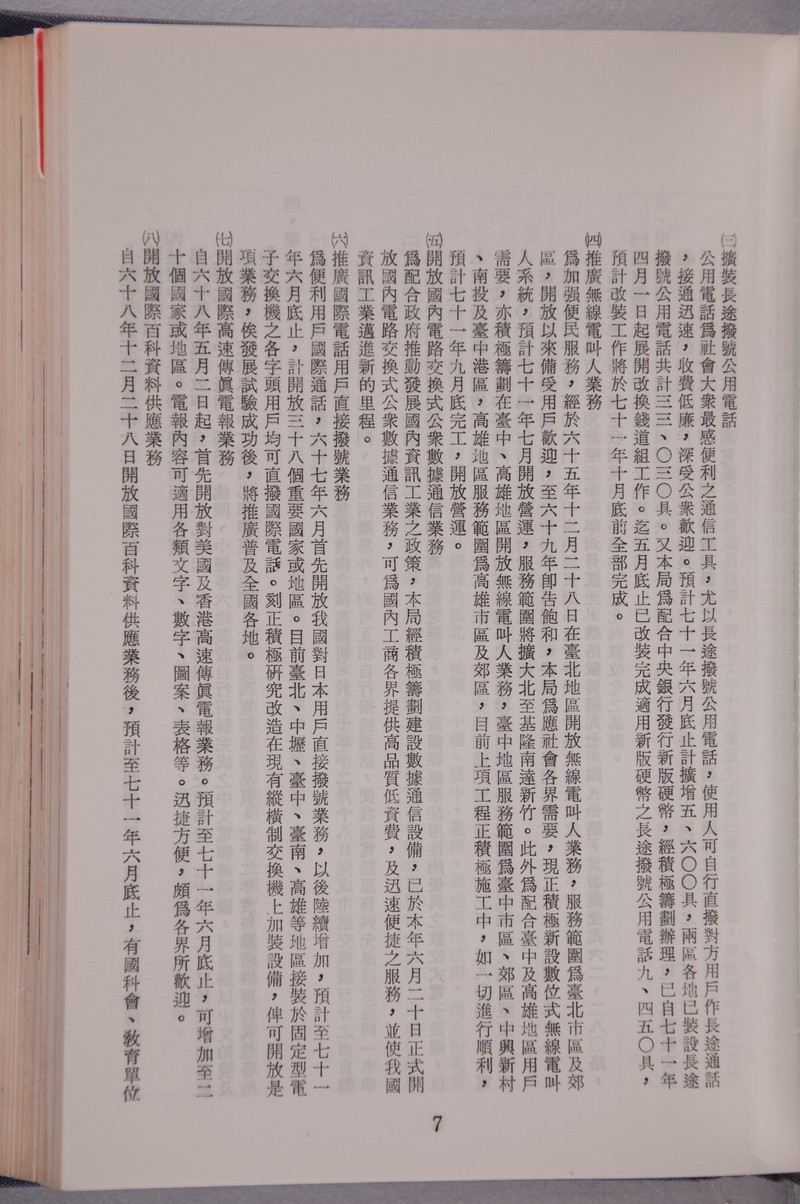 ㈢擴裝長途撥號公用電話
公用電話爲社會大衆最感便利之通信工具，尤以長途撥號公用電話，使用人可自行直撥對方用戶作長途通話
，接通迅速，收費低廉，深受公衆歡迎。預計七十一年六月底止計擴增五、六〇〇具，兩區各地已裝設長途
撥號公用電話共計三三、〇三〇具。又本局爲配合中央銀行發行新版硬幣，經積極籌劃辦理，已自七十一年
四月一日起展開改換錢道組工作。迄五月底止已改裝完成適用新版硬幣之長途撥號公用電話九、四五〇具，
預計改裝工作將於七十一年十月底前全部完成。
㈣推廣無線電叫人業務
爲加强便民服務，經於六十五年十二月二十八日在臺北地區開放無線電叫人業務，服務範圍爲臺北市區及郊
區，開放以來備受用戶歡迎，至六十九年卽告飽和，本局爲應社會各界需要，現正積極新設數位式無線電叫
人系統，預計七十一年七月開放營運，服務範圍將擴大北至基隆南達新竹。此外爲配合臺中及高雄地區用戶
需要，亦積極籌劃在臺中、高雄地區開放無線電叫人業務，臺中地區服務範圍爲臺中市區、郊區、中興新村
、南投及臺中港區，高雄地區服務範圍爲高雄市區及郊區，目前上項工程正積極施工中，如一切進行順利，
預計七十一年九月底完工，開放營運。
㈤開放國內電路交換式公衆數據通信業務
爲配合政府推動發展國內資訊工業之政策，本局經積極籌劃建設數據通信設備，已於本年六月二十日正式開
放國內電路交換式公衆數據通信業務，可爲國內工商各界提供高品質低資費，及迅速便捷之服務，並使我國
資訊工業邁進新的里程。
㈥推廣國際電話用戶直接撥號業務
爲便利用戶國際通話，六十七年六月首先開放我國對日本用戶直接撥號業務，以後陸續增加，預計至七十一
年六月底止，計開放三十八個重要國家或地區。目前臺北、中壢、臺中、臺南、高雄等地區接裝於固定型電
子交換機之各字頭用戶均可直撥國際電話。刻正積極硏究改造在現有縱橫制交換機上加裝設備，俾可開放是
項業務，俟發展試驗成功後，將推廣普及全國各地。
㈦開放國際高速傳眞電報業務
自六十八年五月二日起，首先開放對美國及香港高速傳眞電報業務。預計至七十一年六月底止，可增加至二
十個國家或地區。電報內容可適用各類文字、數字、圖案、表格等。迅捷方便，頗爲各界所歡迎。
㈧開放國際百科資料供應業務
自六十八年十二月二十八日開放國際百科資料供應業務後，預計至七十一年六月底止，有國科會、敎育單位
7